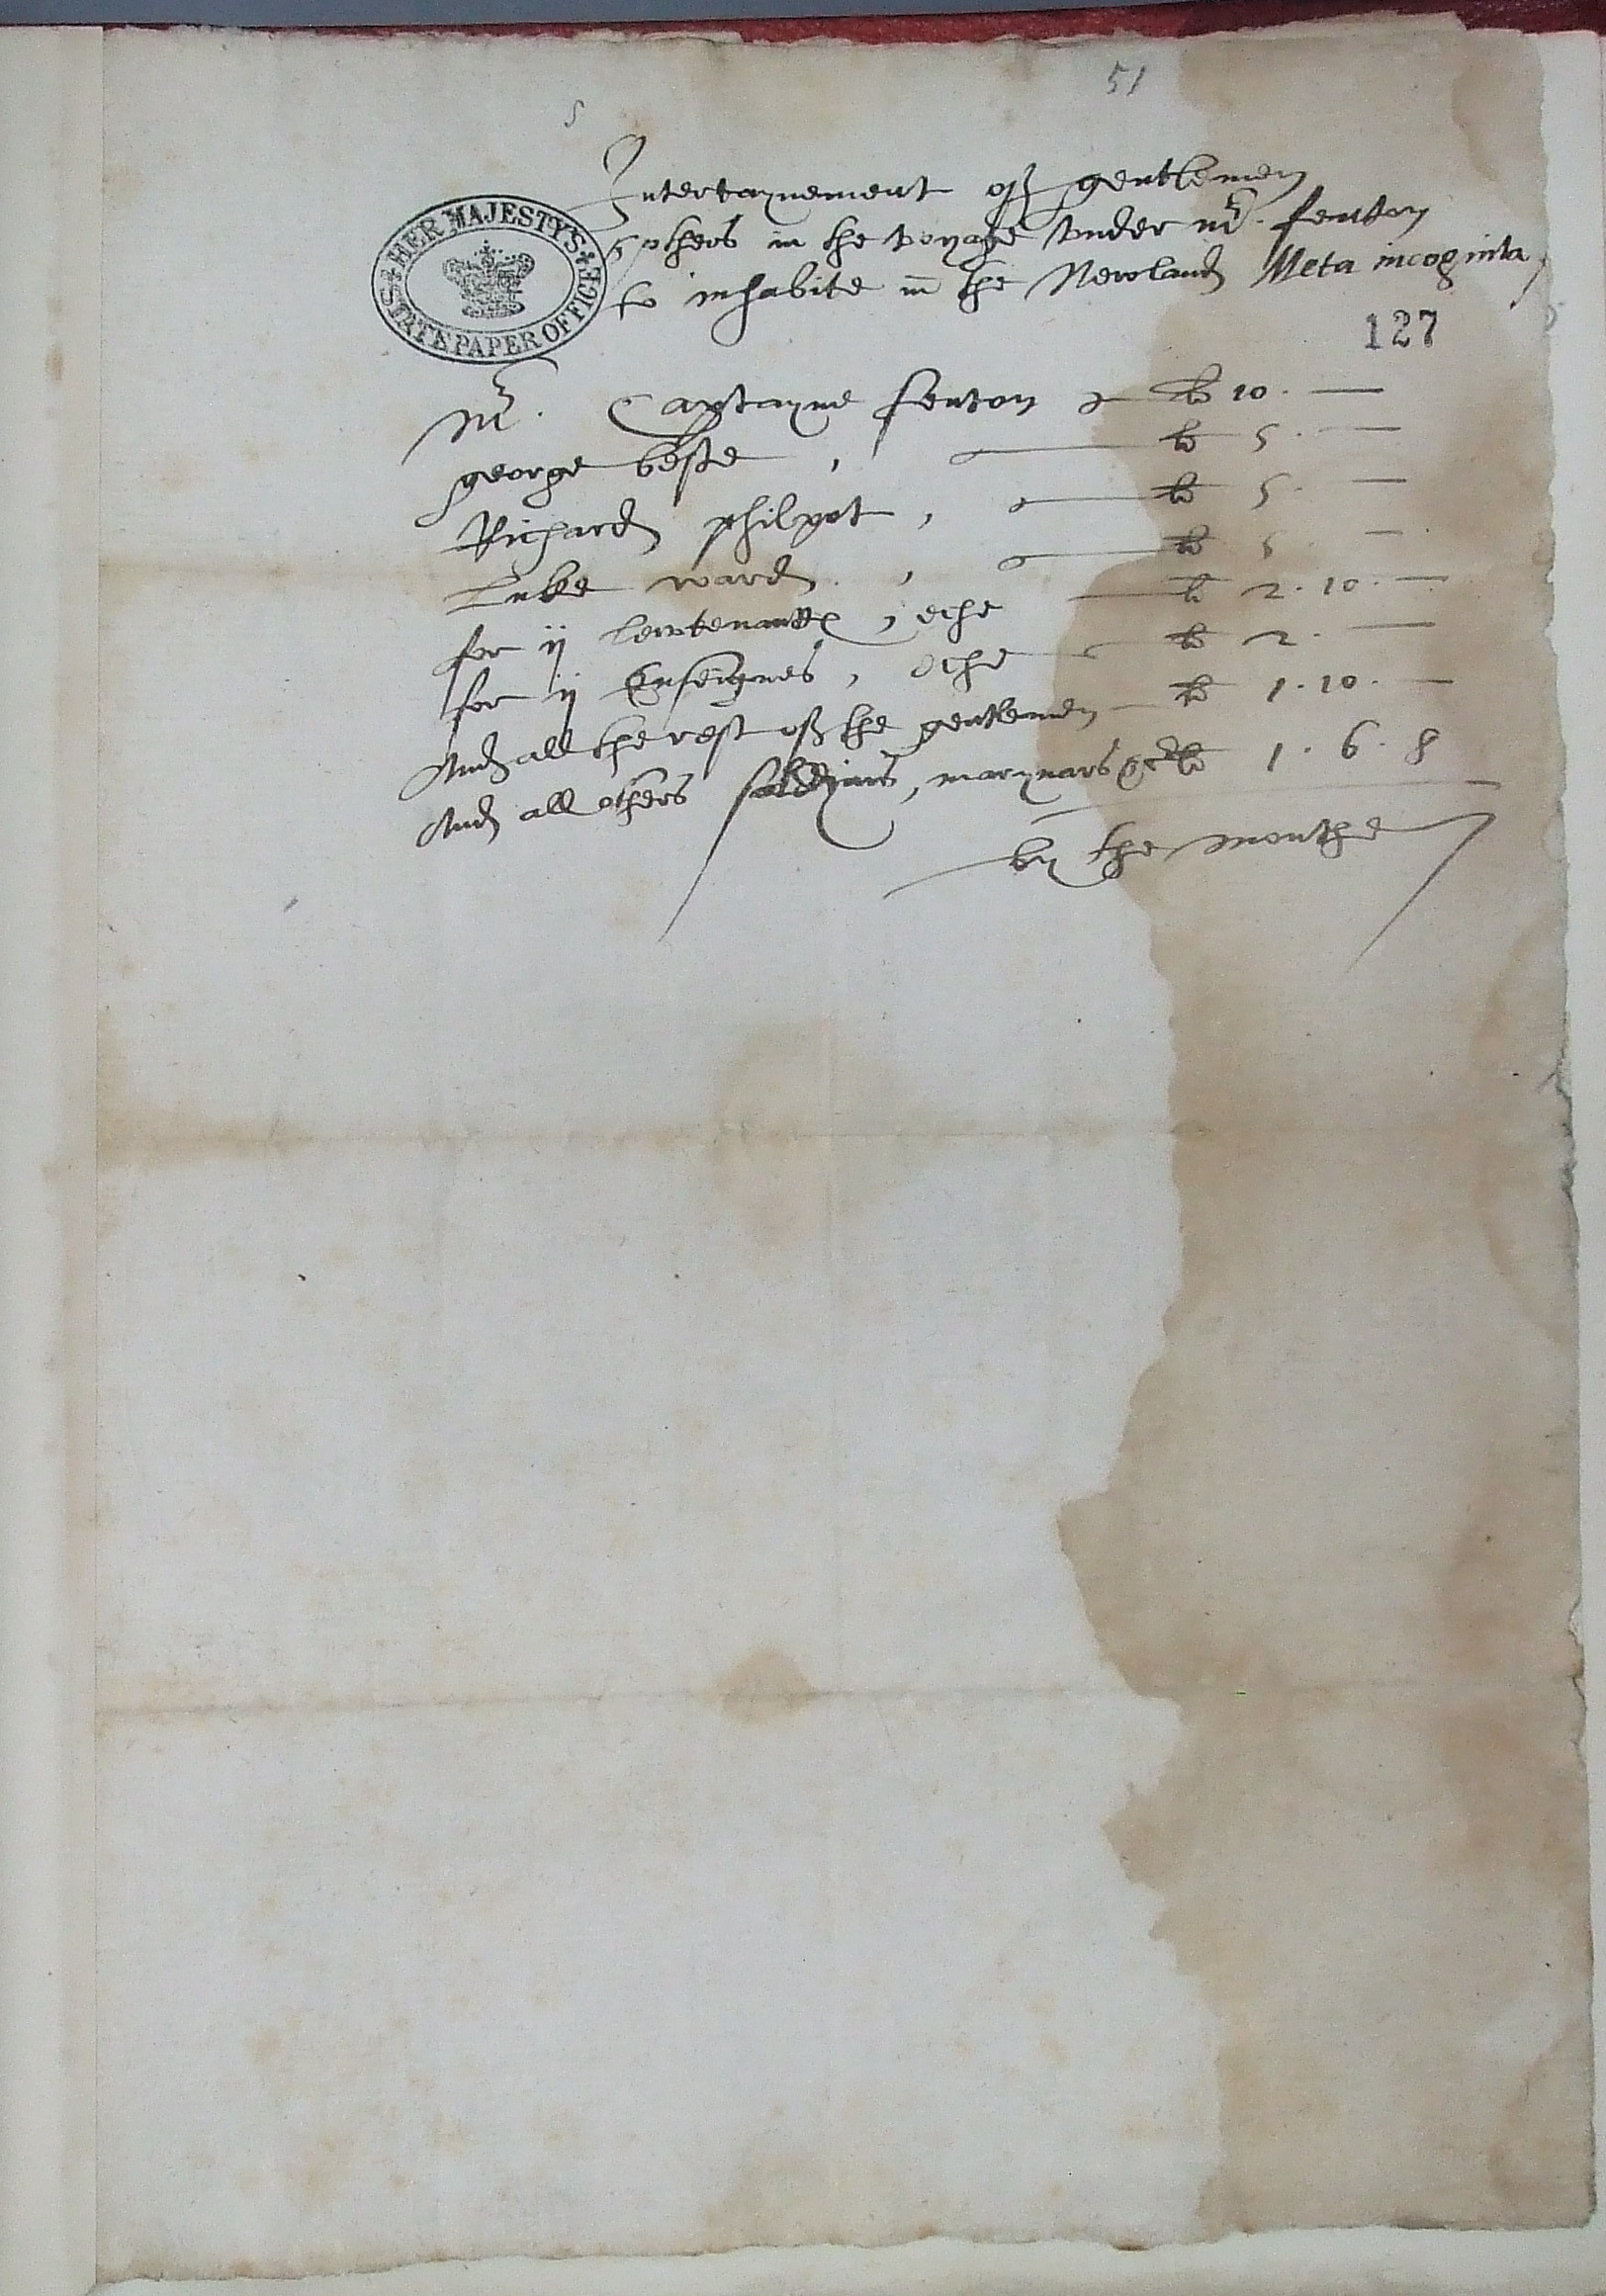 51
Intertaynement off gentlemen
& others in the voyage vnder mr. fenton
to inhabite in the Newland Meta incoginta,
HER MAJESTY'S STATE PAPER OFFICE
127
mr. Captayne fenton lb 10. —
george beste, lb 5. —
Richard philpot, lb 5. —
Luke ward, lb 5. —
for ij lewtenantes, eche lb 2. 10. —
for ij Enseignes, eche lb 2. —
And all the rest off the gentlemen lb 1. 10. —
And all others soldyars, marynars &c lb 1. 6. 8
by the monthe